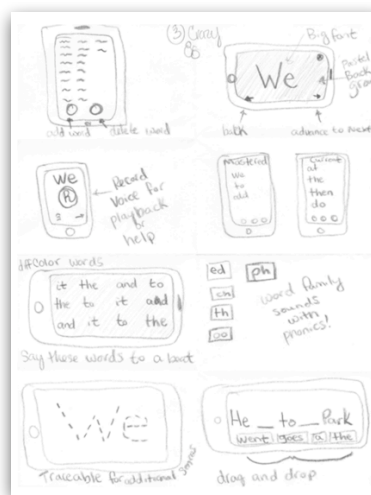 ③ Crazy
8s
add word
delete word
Big font
We
Pastel
Back
groun
back
advance to next
we
R
Record
Voice for
playback
& help
Mastered
We
to
add
Current
at
the
then
do
diff color words
it the and to
the to it and
and it to the
Say these words to a beat
ed
ph
ch
th
oo
word family
sounds
with
phonics!
We
Traceable for additional
He _ to _ Park
went
goes
a
the
drag and drop